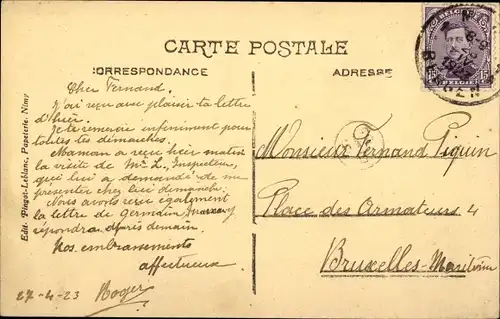 CARTE POSTALE
CORRESPONDANCE
ADRESSE
BELGIQUE
15
15
BELGIE
BERGEN
Edit. Pinget-Leblanc, Papeterie, Nimy
Cher Fernand.
J'ai reçu avec plaisir ta lettre
d'hier.
Je te remercie infiniment pour
toutes tes démarches.
Maman a reçu hier matin
la visite de Mr L. Inspecteur,
qui lui a demandé de me
présenter chez lui dimanche.
Nous avons reçu également
la lettre de Germain,
répondra après demain.
Nos embrassements
affectueux
27-4-23 Roger
Monsieur Fernand Piquin
Place des Armateurs 4
Bruxelles-Maritime